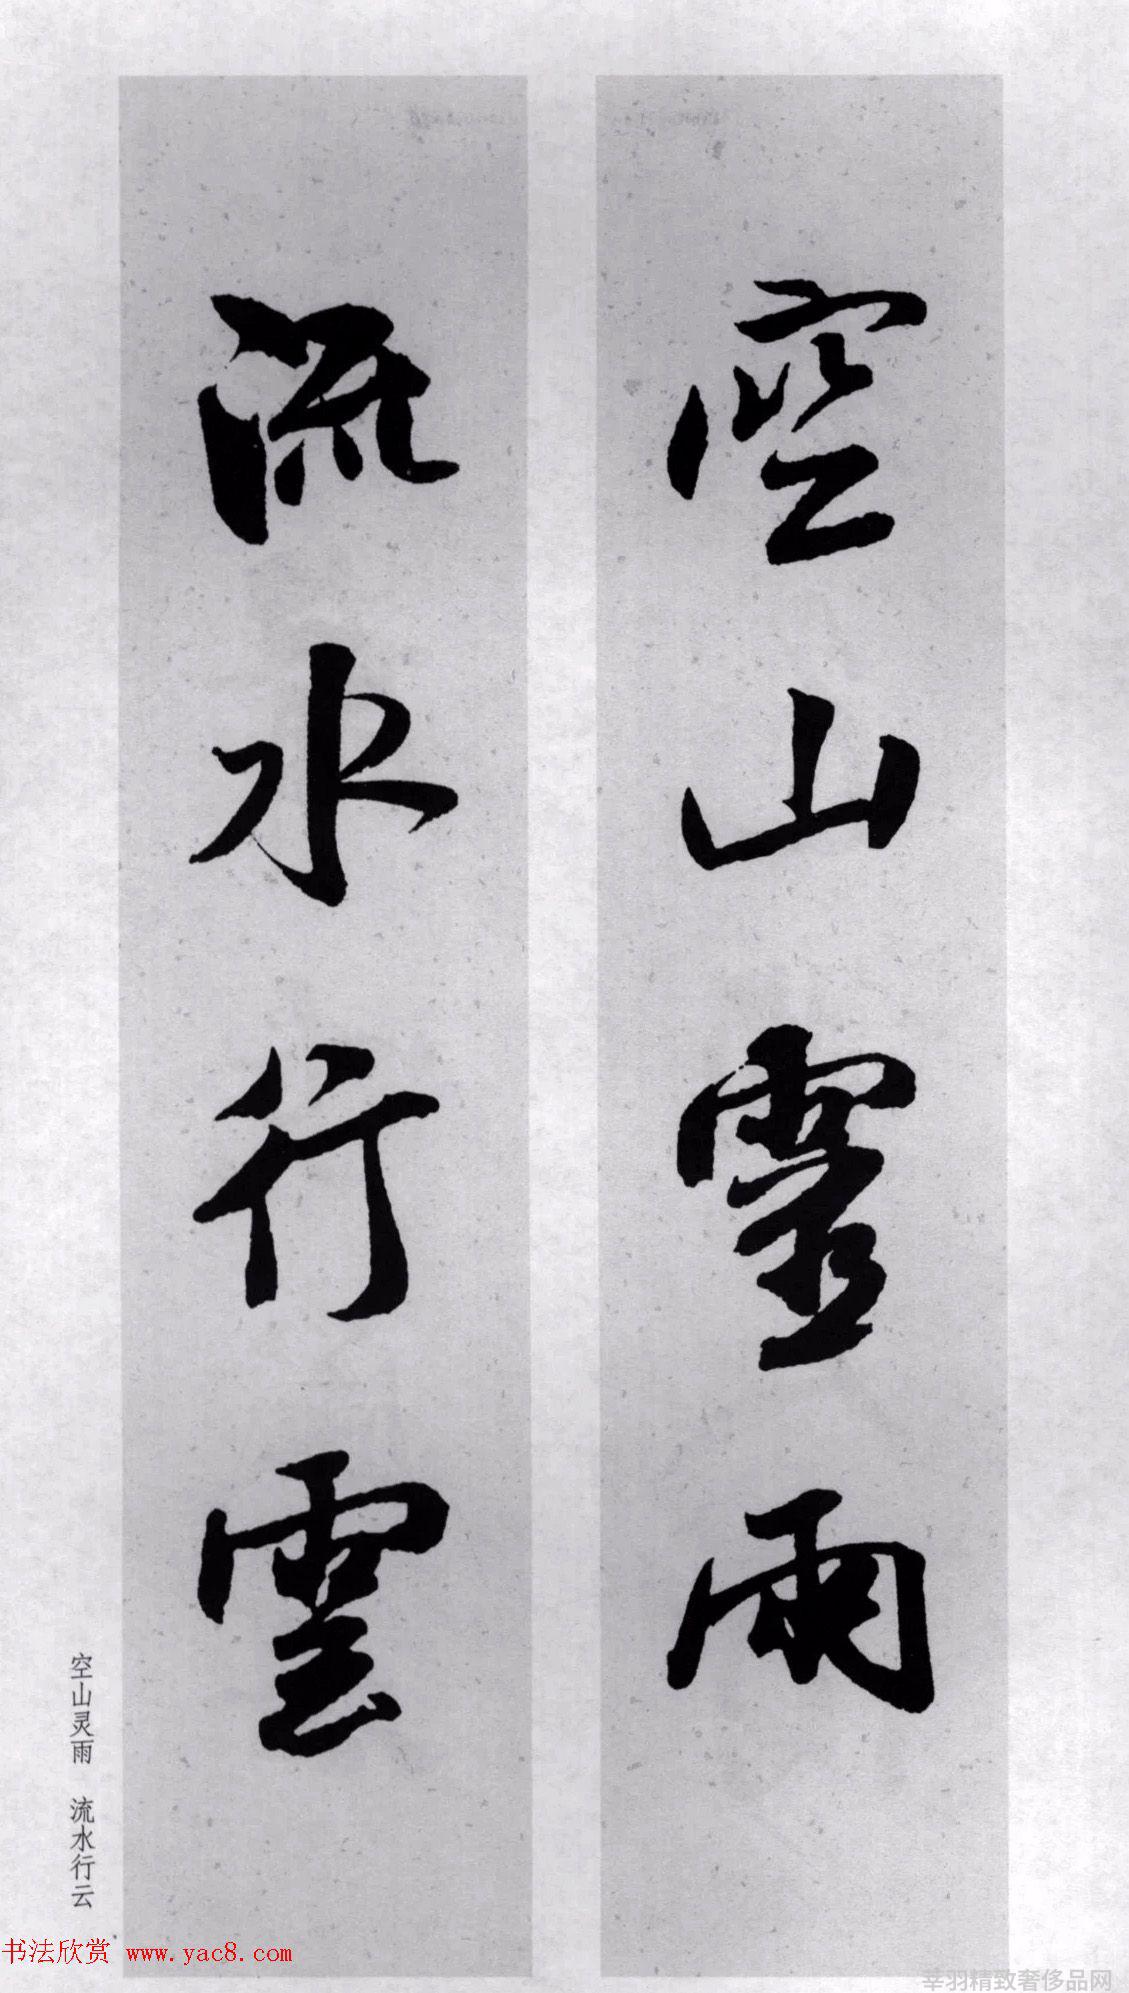 空山靈雨
流水行雲
空山灵雨 流水行云
书法欣赏 www.yac8.com
莘羽精致奢侈品网